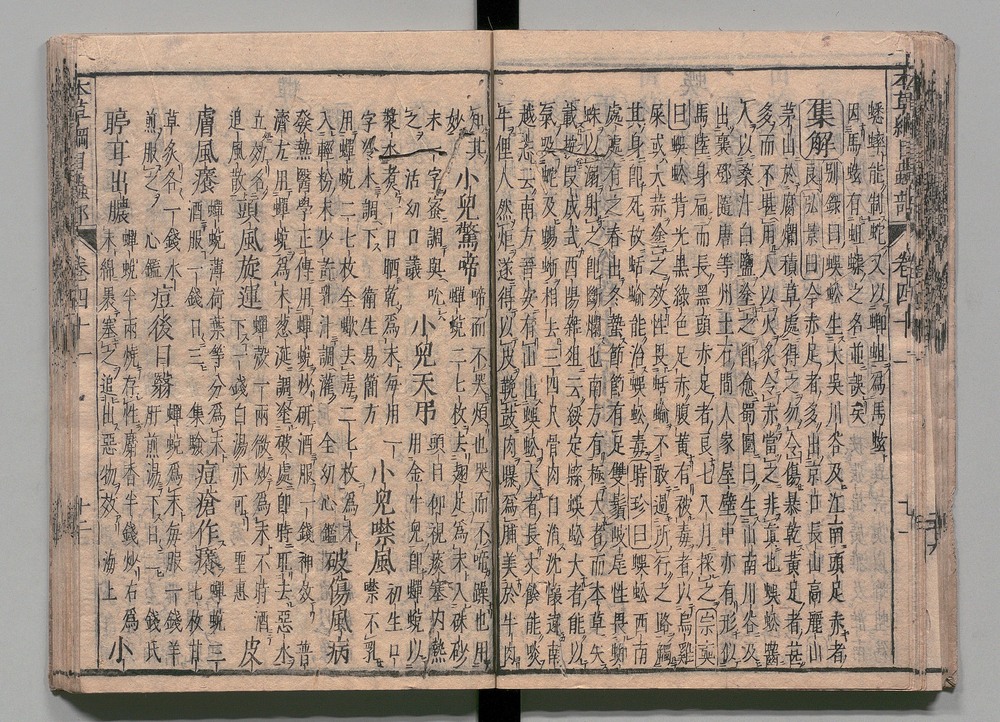 蟋蟀能制蛇又以蝍蛆爲馬蚿
因馬蚿有蛆蟝之名並誤矣
集解 別錄曰蜈蚣生大吳川谷及江南頭足赤者
良 弘景曰今赤足者多出京口長山高麗山
茅山於腐爛積草處得之勿令傷暴乾黃足者甚
多而不堪用人以火炙令赤當之非眞也蜈蚣齧
人以桑汁白鹽塗之卽愈蜀圖曰生山南川谷及
出襄鄧隨唐等州土石間人家屋壁中亦有形似
馬陸身扁而長黑頭赤足者良七八月採之 宗奭
曰蜈蚣背光黑綠色足赤腹黃有被毒者以烏雞
屎或大蒜塗之效性畏蛞蝓不敢過所行之路觸
其身卽死故蛞蝓能治蜈蚣毒 時珍曰蜈蚣西南
處處有之春出冬蟄節節有足雙鬚岐尾性畏蜘
蛛以溺射之卽斷爛也南方有極大者而本草失
載按段成式酉陽雜俎云綏定縣蜈蚣大者能以
氣吸蛇及蜴蜥相去三四尺骨肉自消沈懷遠南
越志云南方晉安有山出蜈蚣大者長丈餘能啖
牛俚人然炬遂得以皮鞔鼓肉曝爲脯美於牛肉
知其
妙 小兒驚啼 啼而不哭煩也哭而不啼躁也用
蟬蛻二七枚去翅足爲末入硃砂
末一字蜜調與吮
之 活幼口議 小兒天弔 頭目仰視痰塞內熱
用金牛兒卽蟬蛻以
漿水煮一日晒乾爲末每用一
字冷水調下 衛生易簡方 小兒噤風 初生口
噤不乳
用蟬蛻二七枚全蠍去毒二七枚爲末
入輕粉末少許乳汁調灌 全幼心鑑 破傷風病
發熱 醫學正傳用蟬蛻炒研酒服一錢神效 普
濟方用蟬蛻爲末葱涎調塗破處卽時取去惡水
立效名
追風散 頭風旋運 蟬殼一兩微炒爲末不時酒
下一錢白湯亦可 聖惠 皮
膚風癢 蟬蛻薄荷葉等分爲末
酒服一錢日三 集驗 痘瘡作癢 蟬蛻三七枚甘
草炙各一錢水
煎服之 心鑑 痘後目翳 蟬蛻爲末每服一錢羊
肝煎湯下日二 錢氏
聤耳出膿 蟬蛻半兩燒存性麝香半錢炒右爲
末綿裹塞之追出惡物效 海上 小